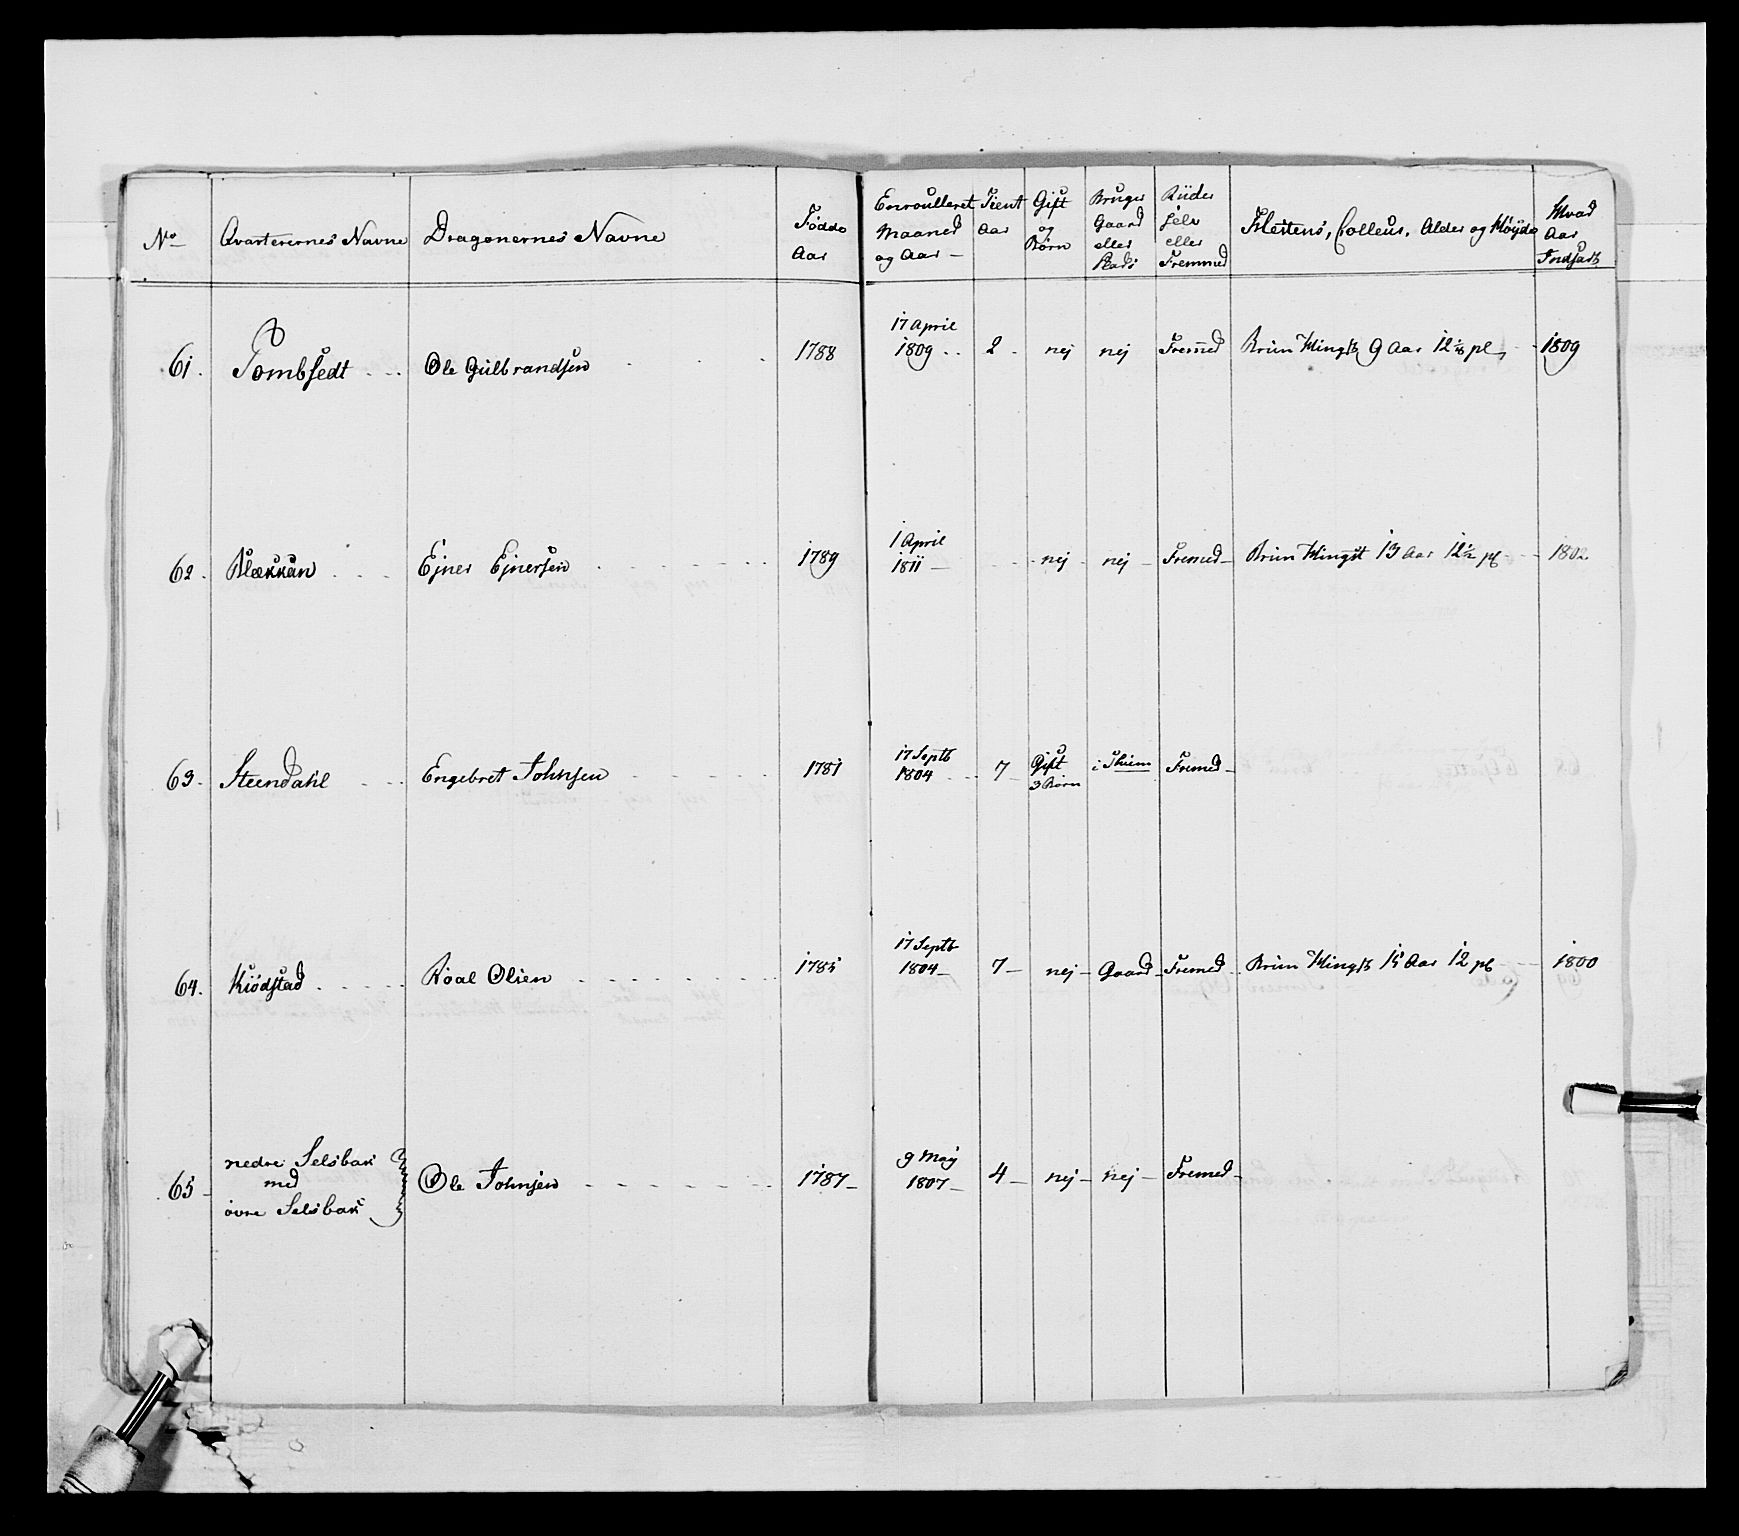 No
Qvarterernes Navne
Dragonernes Navne
Fødde
Aar
Enroulleret
Maaned
og Aar
Tient
Aar
Gift
og
Børn
Bruger
Gaard
eller
Plads
Riider
selv
eller
Fremmed
Hestens, Colleur, Alder og Høyde
Hvad
Aar
Indsadt
61. Tombsedt Ole Gulbrandsen 1788
17 April
1809 2 nej nej Fremed Brun Hingst 9 Aar 1809
62. Blækkan Ejner Ejnersen 1789
1 April
1811 nej nej Fremed Brun Hingst 13 Aar 12½ pl 1802
63. Steendahl Engebret Johnsen 1781
17 Septb
1804 7 Gift
3 Børn
Fremed
64. Kiödstad Roal Olsen 1785
17 Septb
1804 7 nej Gaard Fremed Brun Hingst 15 Aar 12 pl 1800
65
nedre Selsbak
med
övre Selsbak
Ole Johnsen 1787
9 May
1807 4 nej nej Fremed